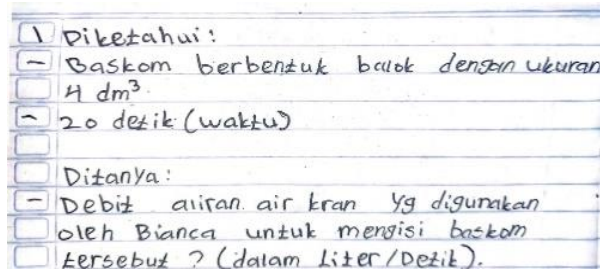 1 Diketahui:
- Baskom berbentuk balok dengan ukuran
4 dm³
- 20 detik (waktu)
Ditanya:
- Debit aliran air kran yg digunakan
oleh Bianca untuk mengisi baskom
tersebut ? (dalam Liter/Detik).